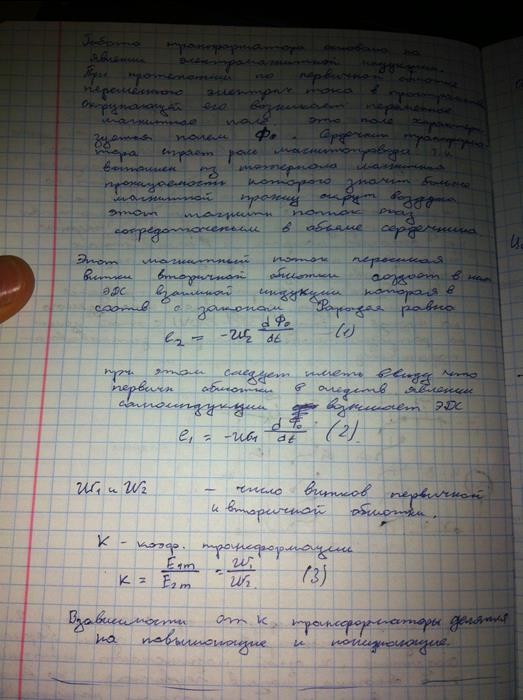 Работа трансформатора основано на
явлении электромагнитной индукции.
При протекании по первичной обмотке
переменного электрич тока в пространстве
окружающей его возникает переменное
магнитное поле это поле характери-
зуется полем Ф₀. Сердечник трансформа-
тора играет роль магнитопровода т.к
из материала магнитная
проницаемость которого значит больше
магнитной прониц окруж воздуха
этот магнитн поток
сосредоточенным в объеме сердечника
Этот магнитный поток пересекая
витки вторичной обмотки создает в них
ЭДС взаимной индукции которая в
соотв с законом Фарадея равна
e₂ = -w₂ dФ₀/dt (1)
при этом следует иметь ввиду что
первичн обмотки в следств явлении
самоиндукции возникает ЭДС
e₁ = -w₁ dФ₀/dt (2)
W₁ и W₂ - число витков первичной
и вторичной обмотки.
К - коэф. трансформации
К = E₁m/E₂m = W₁/W₂ (3)
Взависимости от К трансформаторы делятся
на повышающие и понижающие.